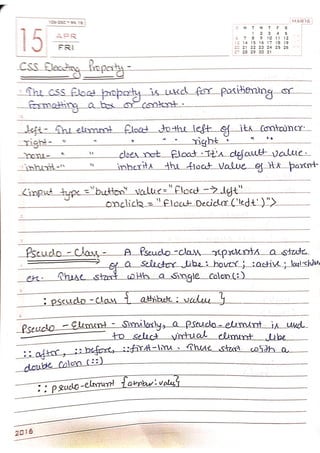 106-260 • WK 16
MAR16
15
APR
FRI
S M T W T F S
1 2 3 4 5
6 7 8 9 10 11 12
13 14 15 16 17 18 19
20 21 22 23 24 25 26
27 28 29 30 31
CSS Floating Property -
The CSS float property is used for positioning or
formatting a box or content.
left - The element float to the left of its container.
right - " " " " right " "
none - " " does not float. It's default value.
inherit - " inherits the float value of its parent
<input type = "button" value = "float -> left"
onclick = "Float Decider ('left')">
Pseudo - Class - A Pseudo-class represents a state
of a selector like : hover ; :active ;
etc. These start with a single colon (:)
: pseudo-class { attribute : value }
Pseudo - Element - Similarly, a pseudo-element is used
to select virtual element like
:: after, :: before, ::first-line. These start with a
double colon (::)
:: pseudo-element {attribute: value}
2016